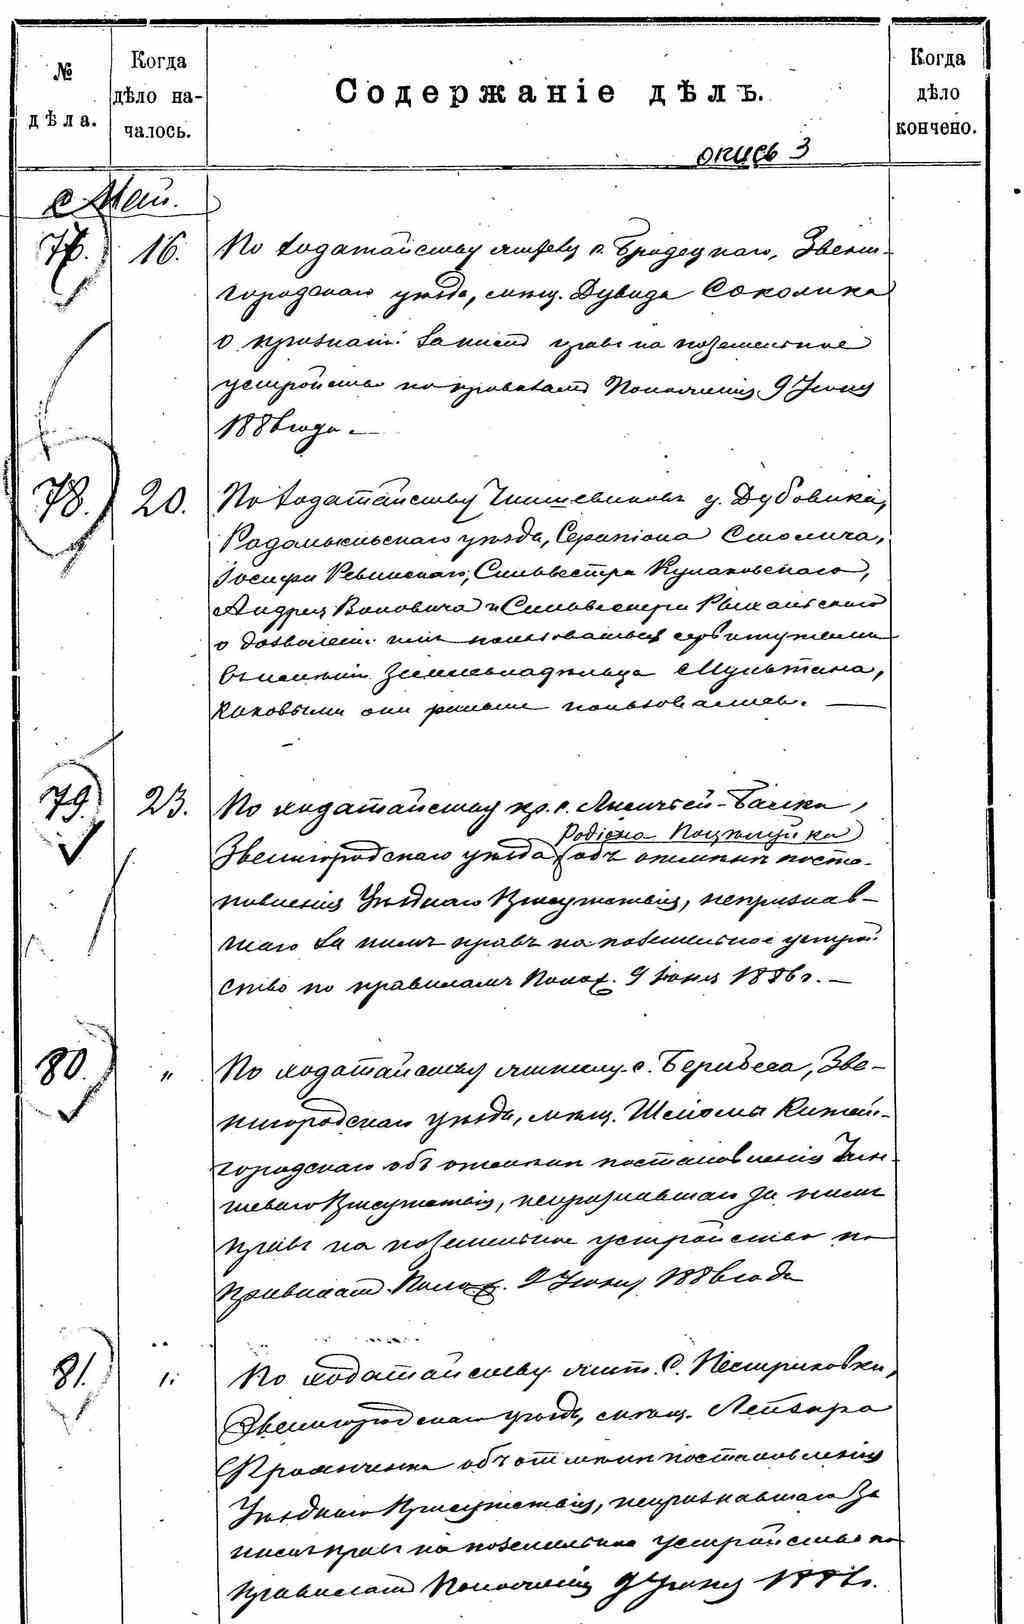 № дѣла.
Когда дѣло началось.
Содержаніе дѣлъ.
Когда дѣло кончено.
опись 3
Май.
76. 16. По ходатайству жителя с. Бродецкаго, Звени-
городскаго уѣзда, мѣщ. Дувида Соколика
о признаніи за нимъ правъ на поземельное
устройство по правиламъ Положенія 9 Іюня
1886 года.
78. 20. По ходатайству Чиншевиковъ у. Дубовика,
Радомысльскаго уѣзда, Серапіона Смолича,
Іосифа Ревинскаго, Сильвестра Кулаковскаго,
Андрея Воповича и Сильвестра
о дозволеніи имъ пользоваться сервитутами
въ имѣніи землевладѣльца Мультана,
каковыми они раньше пользовались.
79. 23. По ходатайству кр. с. Лисичьей-Балки,
Родіона Поцѣлуйка
Звенигородскаго уѣзда объ отмѣнѣ поста-
новленія Уѣзднаго Присутствія, непризнав-
шаго за нимъ правъ на поземельное устрой-
ство по правиламъ Полож. 9 Іюня 1886 г.
80. " По ходатайству жителя с. Звe-
нигородскаго уѣзда, мѣщ. Шлёмы Китай-
городскаго объ отмѣнѣ постановленія Чин-
шеваго Присутствія, непризнавшаго за нимъ
правъ на поземельное устройство по
правиламъ Полож. 9 Іюня 1886 года
81. " По ходатайству жит. с. Пестриковки,
Звенигородскаго уѣзда, мѣщ. Лейзера
объ отмѣнѣ постановленія
Уѣзднаго Присутствія, непризнавшаго за
нимъ правъ на поземельное устройство по
правиламъ Положенія 9 Іюня 1886 г.